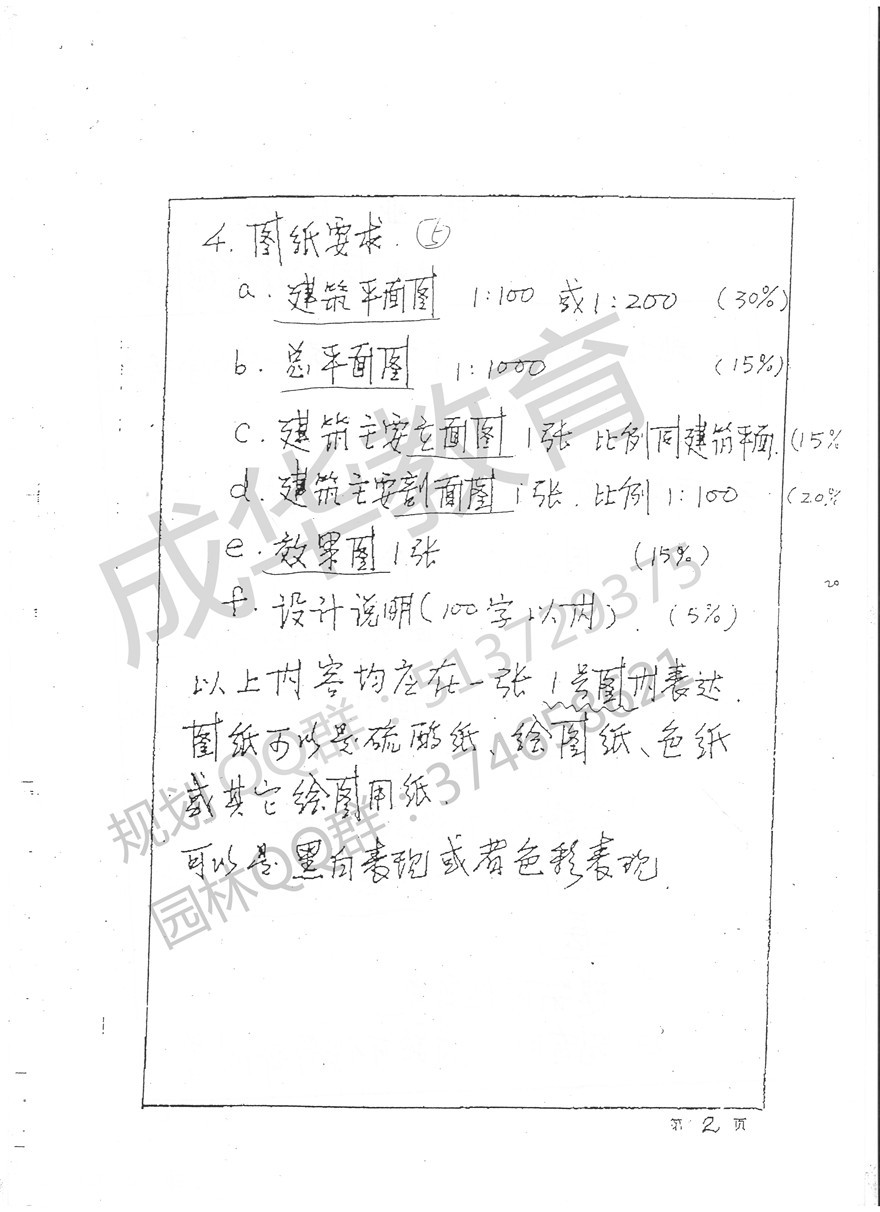 4. 图纸要求. ⑤
a. 建筑平面图 1:100 或 1:200 (30%)
b. 总平面图 1:1000 (15%)
c. 建筑主要立面图 1张 比例同建筑平面. (15%
d. 建筑主要剖面图 1张. 比例 1:100 (20%
e. 效果图 1张 (15%)
20
f. 设计说明(100字以内). (5%)
以上内容均应在一张1号图内表达.
图纸可以是硫酸纸、绘图纸、色纸
或其它绘图用纸.
可以是黑白表现或者色彩表现.
第 2 页
成华教育
规划QQ群：513729373
园林QQ群：374658621